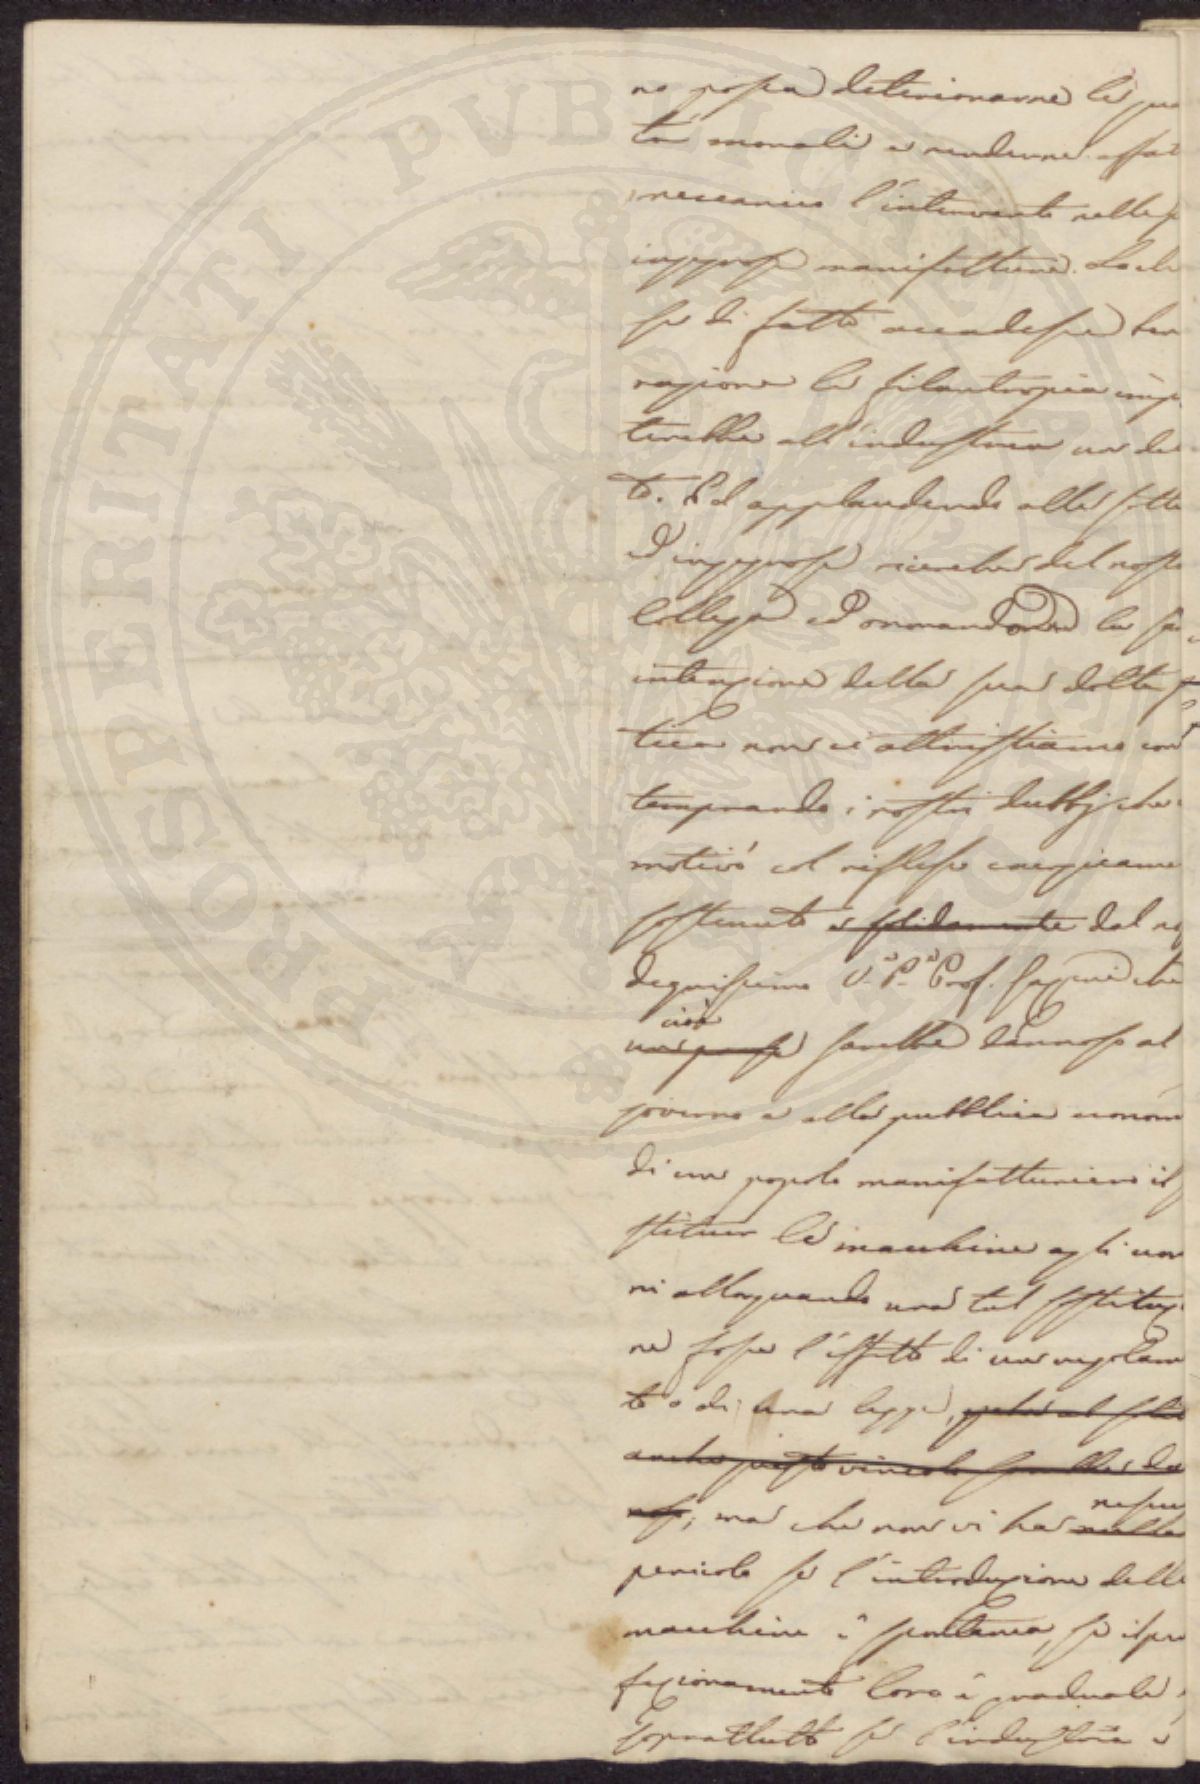 PROSPERITATI PVBLICAE
ne possa deteriorarne le qua
tà morali e renderne affat
necessario l'intervento nelle
ingegnose manifatture. Loche
se di fatto accadesse
ragione la filantropia
terebbe all'industria un de
to. Ed applaudendo alle fatte
ed ingegnose ricerche del nostro
Collega ed onorandone la
intenzione della sua dotta
tica non ci attristiamo con
temprando i nostri dubbj che
motivò col riflesso energicame
sostenuto e solidamente dal
degnissimo V. P. Prof. che
ciò
sarebbe dannoso al
governo e alla pubblica econom
di un popolo manifatturiero il
stituir le macchine agli uom
ni allorquando una tal sostituzi
ne fosse l'effetto di un regolam
to o di una legge,
anche questo vincolo sarebbe da
noso; ma che non vi ha nulla
nessun
pericolo se l'introduzione delle
macchine è spontanea, se il per
fezionamento loro è graduale,
soprattutto se l'industria è